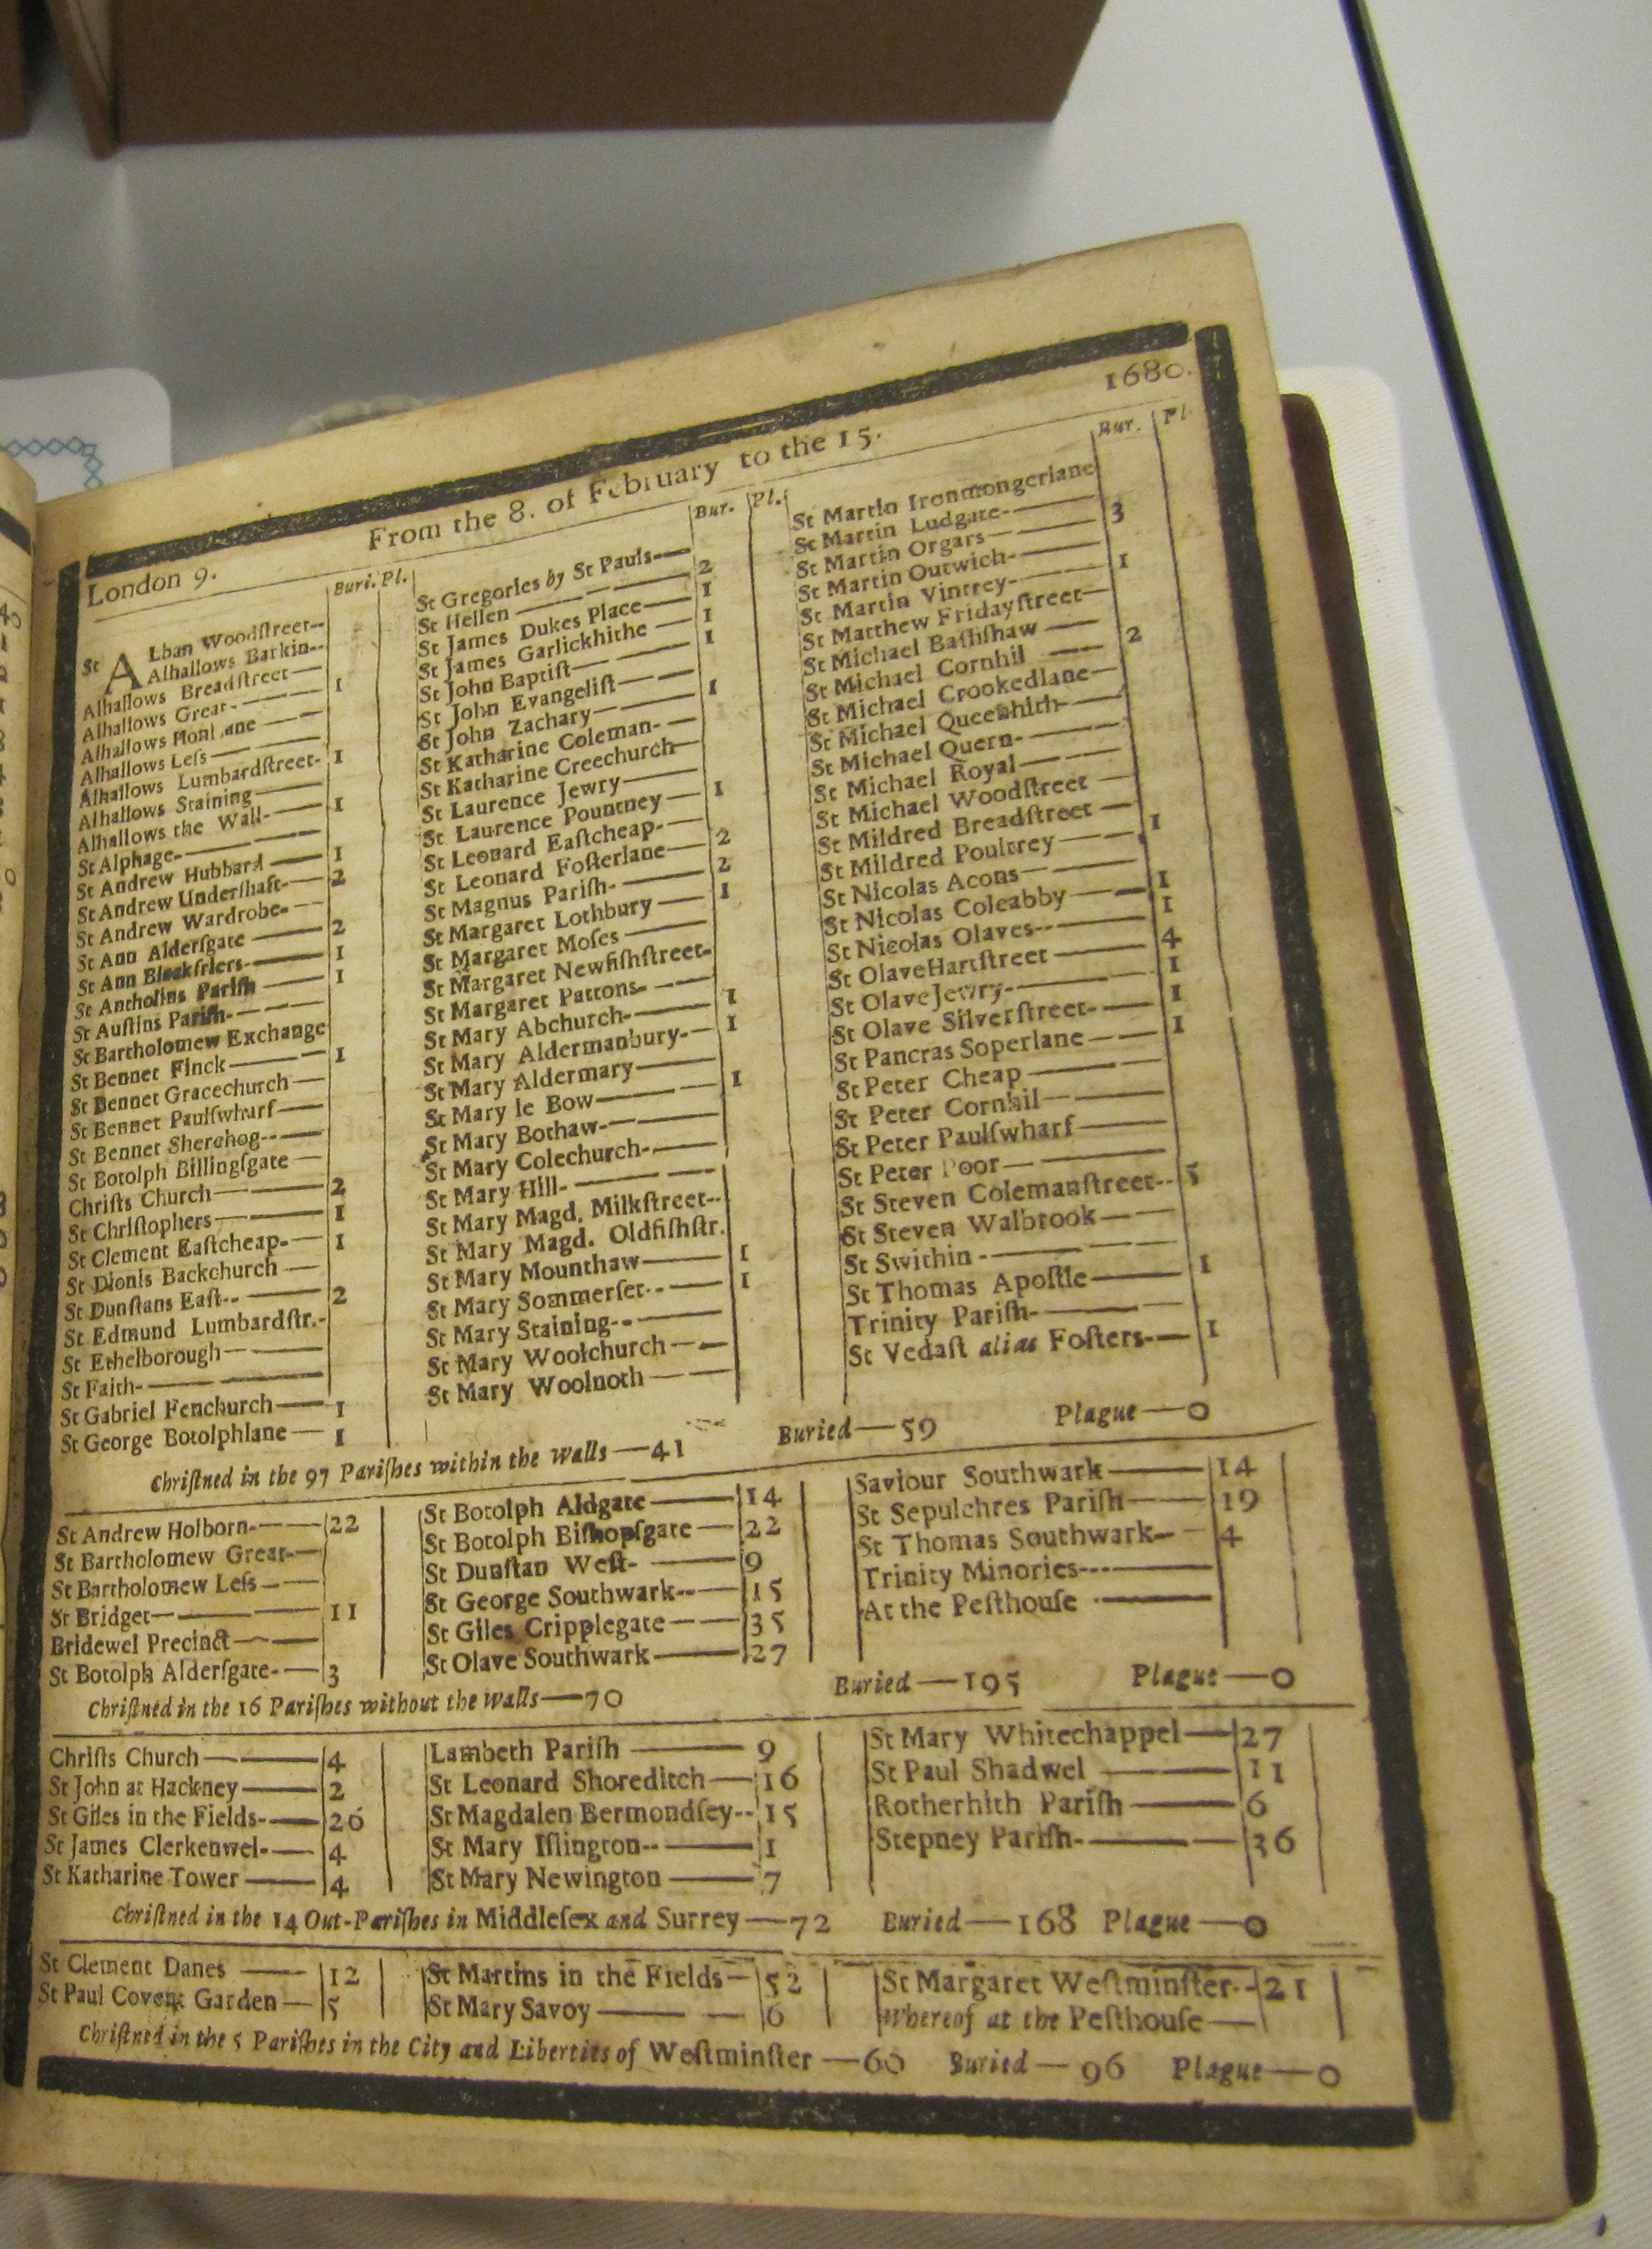 1680.
From the 8. of February to the 15.
London 9.
Buri. Pl.
St ALban Woodſtreet--
Alhallows Barkin--
Alhallows Breadſtreet—
Alhallows Great-— 1
Alhallows
Alhallows Leſs—
Alhallows Lumbardſtreet- 1
Alhallows Staining—
Alhallows the Wall-— 1
St Alphage-—
St Andrew Hubbard— 1
St Andrew Underſhaft-— 2
St Andrew Wardrobe-—
St Ann Alderſgate— 2
St Ann Blackfriers-— 1
St Antholins Pariſh— 1
St Auſtins Pariſh-—
St Bartholomew Exchange
St Bennet Finck— 1
St Bennet Gracechurch—
St Bennet Paulſwharf—
St Bennet Sherehog--—
St Botolph Billingſgate—
Chriſts Church— 2
St Chriſtophers— 1
St Clement Eaſtcheap-— 1
St Dionis Backchurch—
St Dunſtans Eaſt--— 2
St Edmund Lumbardſtr.-
St Ethelborough—
St Faith-—
St Gabriel Fenchurch— 1
St George Botolphlane— 1
Bur. Pl.
St Gregories by St Pauls-—
St Hellen— 2
St James Dukes Place— 1
St James Garlickhithe— 1
St John Baptiſt— 1
St John Evangeliſt—
St John Zachary— 1
St Katharine Coleman-—
St Katharine Creechurch—
St Laurence Jewry—
St Laurence Pountney— 1
St Leonard Eaſtcheap-—
St Leonard Foſterlane— 2
St Magnus Pariſh-— 2
St Margaret Lothbury— 1
St Margaret Moſes—
St Margaret Newfiſhſtreet-
St Margaret Pattons-—
St Mary Abchurch-— 1
St Mary Aldermanbury-— 1
St Mary Aldermary—
St Mary le Bow— 1
St Mary Bothaw-—
St Mary Colechurch-—
St Mary Hill-—
St Mary Magd. Milkſtreet--
St Mary Magd. Oldfiſhſtr.
St Mary Mounthaw— 1
St Mary Sommerſet--— 1
St Mary Staining--—
St Mary Woolchurch—
St Mary Woolnoth—
Bur. Pl
St Martin Ironmongerlane
St Martin Ludgate-— 3
St Martin Orgars—
St Martin Outwich-— 1
St Martin Vintrey-—
St Matthew Fridayſtreet—
St Michael Baſhſhaw— 2
St Michael Cornhil—
St Michael Crookedlane—
St Michael Queenhith-
St Michael Quern-—
St Michael Royal—
St Michael Woodſtreet—
St Mildred Breadſtreet— 1
St Mildred Poultrey—
St Nicolas Acons— 1
St Nicolas Coleabby— 1
St Nicolas Olaves--—
St Olave Hartſtreet— 4
St Olave Jewry-— 1
St Olave Silverſtreet-— 1
St Pancras Soperlane— 1
St Peter Cheap—
St Peter Cornhil—
St Peter Paulſwharf—
St Peter Poor—
St Steven Colemanſtreet-- 5
St Steven Walbrook—
St Swithin-—
St Thomas Apoſtle— 1
Trinity Pariſh-—
St Vedaſt alias Foſters-— 1
Chriſtned in the 97 Pariſhes within the walls—41 Buried—59 Plague—0
St Andrew Holborn-— 22
St Bartholomew Great-—
St Bartholomew Leſs—
St Bridget— 11
Bridewel Precinct—
St Botolph Alderſgate-— 3
St Botolph Aldgate— 14
St Botolph Biſhopſgate— 22
St Dunſtan Weſt-— 9
St George Southwark--— 15
St Giles Cripplegate— 35
St Olave Southwark— 27
Saviour Southwark— 14
St Sepulchres Pariſh— 19
St Thomas Southwark— 4
Trinity Minories---—
At the Peſthouſe—
Chriſtned in the 16 Pariſhes without the walls—70 Buried—195 Plague—0
Chriſts Church— 4
St John at Hackney— 2
St Giles in the Fields-— 26
St James Clerkenwel-— 4
St Katharine Tower— 4
Lambeth Pariſh— 9
St Leonard Shoreditch— 16
St Magdalen Bermondſey-- 15
St Mary Iſlington--— 1
St Mary Newington— 7
St Mary Whitechappel— 27
St Paul Shadwel— 11
Rotherhith Pariſh— 6
Stepney Pariſh-— 36
Chriſtned in the 14 Out-Pariſhes in Middleſex and Surrey—72 Buried—168 Plague—0
St Clement Danes— 12
St Paul Covent Garden— 5
St Martins in the Fields— 52
St Mary Savoy— 6
St Margaret Weſtminſter-- 21
Whereof at the Peſthouſe—
Chriſtned in the 5 Pariſhes in the City and Liberties of Weſtminſter— Buried—96 Plague—0